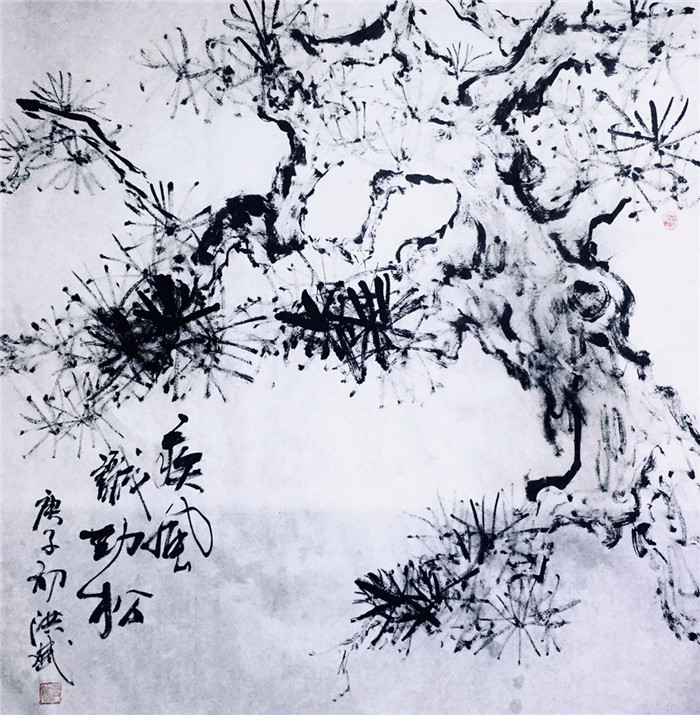 疾風
識勁松
庚子初洪斌